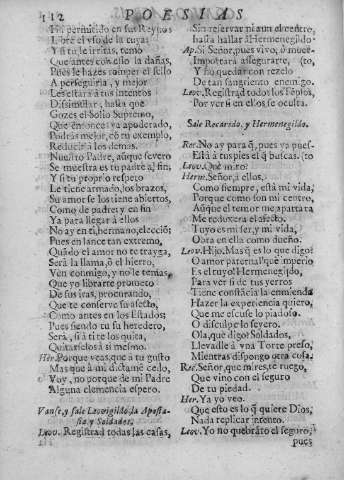 112 POESIAS
Ha permitido en sus Reynos
Libre el vso de la tuya:
Y si tu le irritas, temo
Que antes con esso la dañas,
Pues le hazes romper el sello
A perseguirla, y mejor
Les estará à tus intentos
Dissimular, hasta que
Gozes el Solio Supremo,
Que entonces ya apoderado,
Podràs mejor, cõ tu exemplo,
Reducir à los demàs.
Nuestro Padre, aũque severo
Se muestra es tu padre al fin,
Y si tu proprio respeto
Le tiene armado, los brazos,
Su amor se los tiene abiertos,
Como de padre, y en fin
Ya para llegar à ellos
No ay en ti, hermano, elecciõ;
Pues en lance tan extremo,
Quãdo el amor no te trayga,
Serà la llama, ò el hierro.
Ven conmigo, y no le temas,
Que yo librarte prometo
De sus iras, procurando,
Que te conserve su afecto,
Como antes en los Estados;
Pues siendo tu su heredero,
Serà, si à ti te los quita,
Quitarselos à si mesmo.
Her. Porque veas, que à tu gusto
Mas que à mi dictamẽ cedo,
Voy, no porque de mi Padre
Alguna clemencia espero.
Vanse, y sale Leovigildo, la Aposta-
sia, y Soldados.
Leov. Registrad todas las casas,
Sin reservar ni aun el centro,
hasta hallar à Hermenegildo.
Ap. Si Señor, pues vivo, ò muer-
Importarà assegurarte, (to,
Y no quedar con rezelo
De tan sangriento enemigo.
Leov. Registrad todos los Templos,
Por ver si en ellos se oculta.
Sale Recaredo, y Hermenegildo.
Rec. No ay para q̃, pues ya pues-
Està à tus pies el q̃ buscas. (to
Leov. Què miro?
Herm. Señor, à ellos,
Como siempre, està mi vida;
Porque como son mi centro,
Aũque el temor me apartara
Me reduxera el afecto.
Tuyo es mi ser, y mi vida,
Obra en ella como dueño.
Leov. Hijo. Mas q̃ es lo que digo?
O amor paternal! què imperio
Es el tuyo! Hermenegildo,
Para ver si de tus yerros
Tiene constãcia la enmienda
Hazer la experiencia quiero,
Que me escuse lo piadoso,
O disculpe lo severo.
Ola, què digo? Soldados,
Llevadle à vna Torre preso,
Mientras dispongo otra cosa.
Rec. Señor, que mires, te ruego,
Que vino con el seguro
De tu piedad.
Her. Ya yo veo.
Que esto es lo q̃ quiere Dios,
Nada replicar intento.
Leov. Yo no quebrãto el seguro,
pues